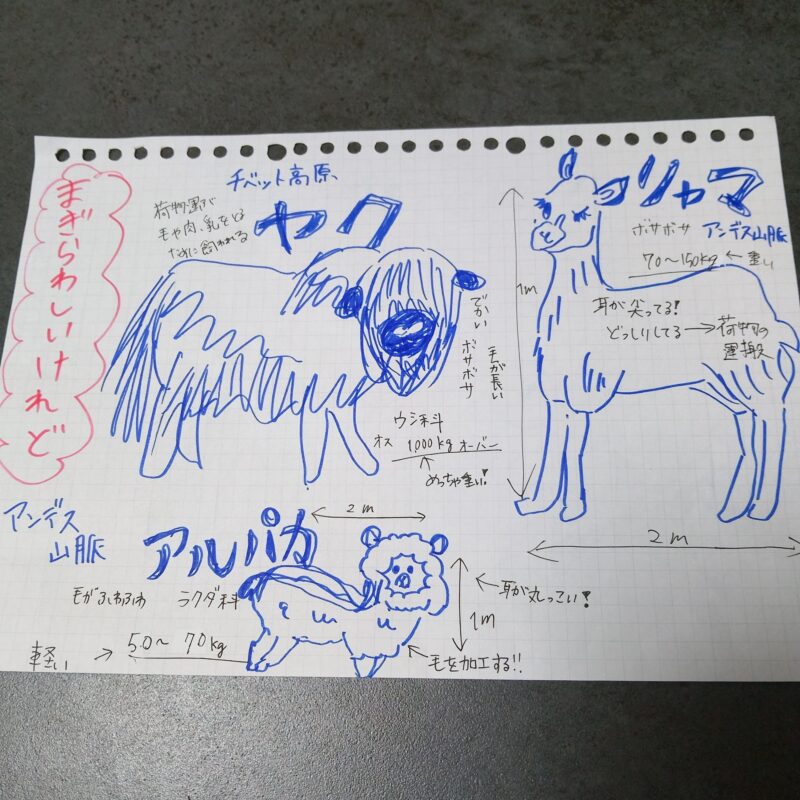 まぎらわしいけれど
チベット高原、
ヤク
荷物運びや
毛や肉、乳をとる
ために飼われる
でかい ボサボサ
毛が長い
ウシ科
オス 1,000kgオーバー
めっちゃ重い!
リャマ
ボサボサ アンデス山脈
70〜150kg ← 重い
耳が尖ってる!
どっしりしてる → 荷物の
運搬
1m
2m
アンデス
山脈
アルパカ
2m
毛がふわふわ ラクダ科
軽い → 50〜70kg
← 耳が丸っこい!
1m
毛を加工する!!